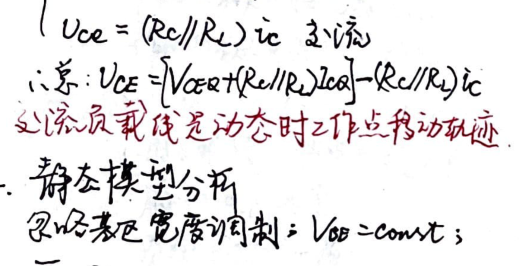 Uce = (Rc//RL) ic 交流
∴总: UCE = [VCEQ+(Rc//RL)ICQ]-(Rc//RL)ic
交流负载线是动态时工作点移动轨迹.
静态模型分析
忽略基区宽度调制: VBE=const;